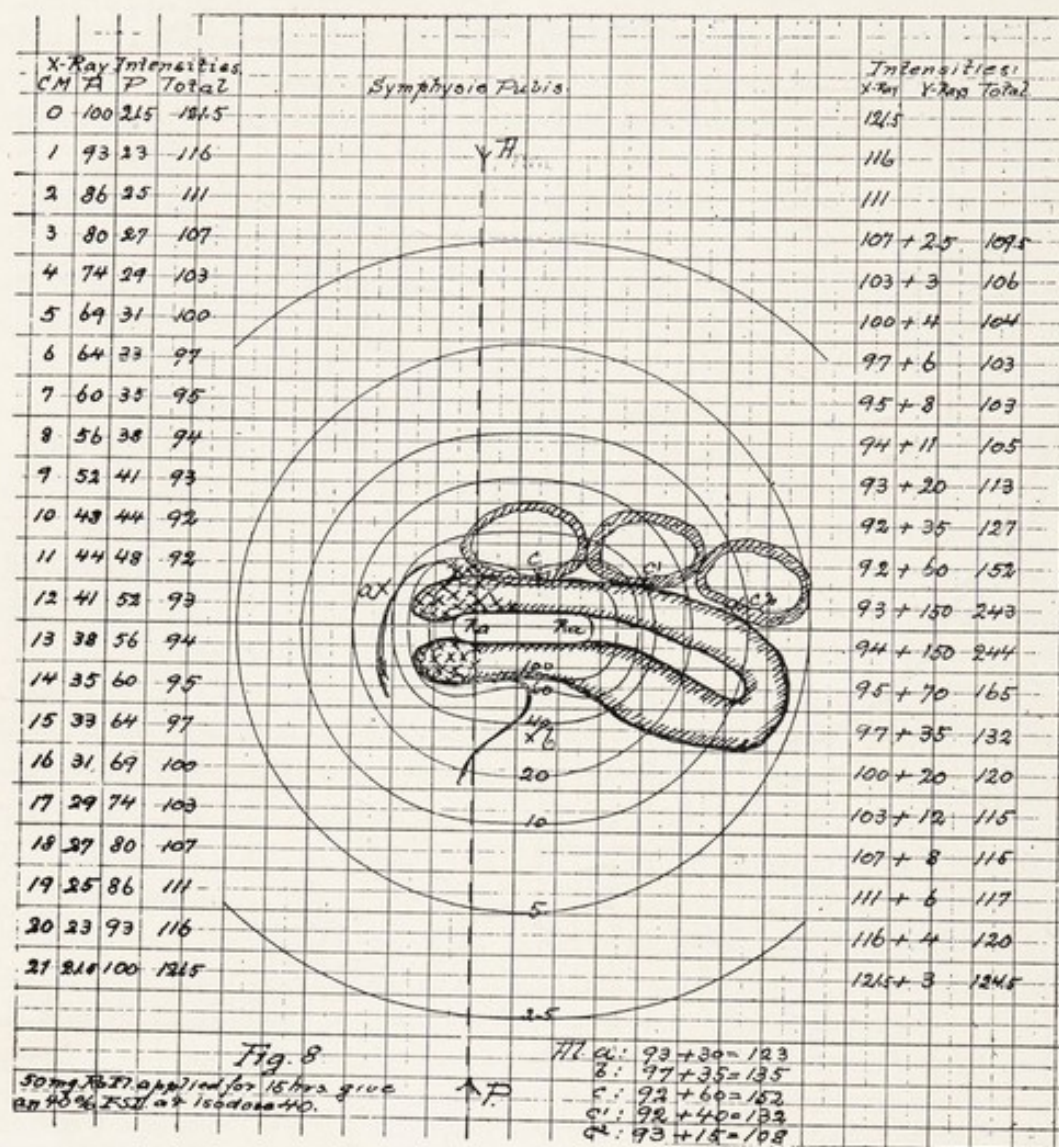 X-Ray Intensities.
CM A P Total
0 100 21.5 121.5
1 93 23 116
2 86 25 111
3 80 27 107
4 74 29 103
5 69 31 100
6 64 33 97
7 60 35 95
8 56 38 94
9 52 41 93
10 48 44 92
11 44 48 92
12 41 52 93
13 38 56 94
14 35 60 95
15 33 64 97
16 31 69 100
17 29 74 103
18 27 80 107
19 25 86 111
20 23 93 116
21 21.5 100 121.5
Symphysis Pubis.
A.
C
C'
C²
a x
Ra Ra
100
60
40
x b
20
10
5
2.5
P.
Intensities:
X-Ray γ-Rays Total
121.5
116
111
107 + 2.5 109.5
103 + 3 106
100 + 4 104
97 + 6 103
95 + 8 103
94 + 11 105
93 + 20 113
92 + 35 127
92 + 60 152
93 + 150 243
94 + 150 244
95 + 70 165
97 + 35 132
100 + 20 120
103 + 12 115
107 + 8 115
111 + 6 117
116 + 4 120
121.5 + 3 124.5
Fig. 8
50 mg applied for 15 hrs. give
an 40% at isodose 40.
At a: 93 + 30 = 123
b: 97 + 35 = 135
c: 92 + 60 = 152
c': 92 + 40 = 132
c²: 93 + 15 = 108